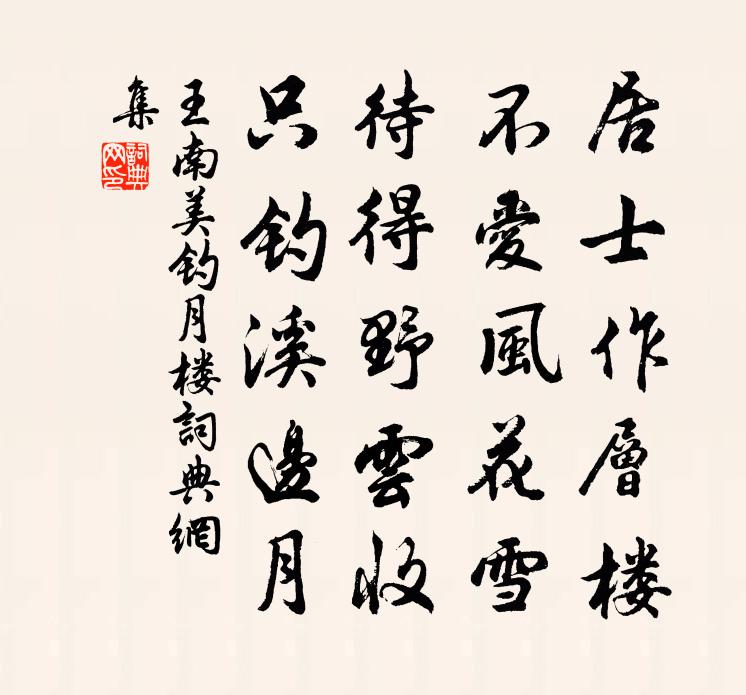 居士作層楼
不愛風花雪
待得野雲收
只釣溪邊月
王南美釣月楼詞典網
集
詞典網印